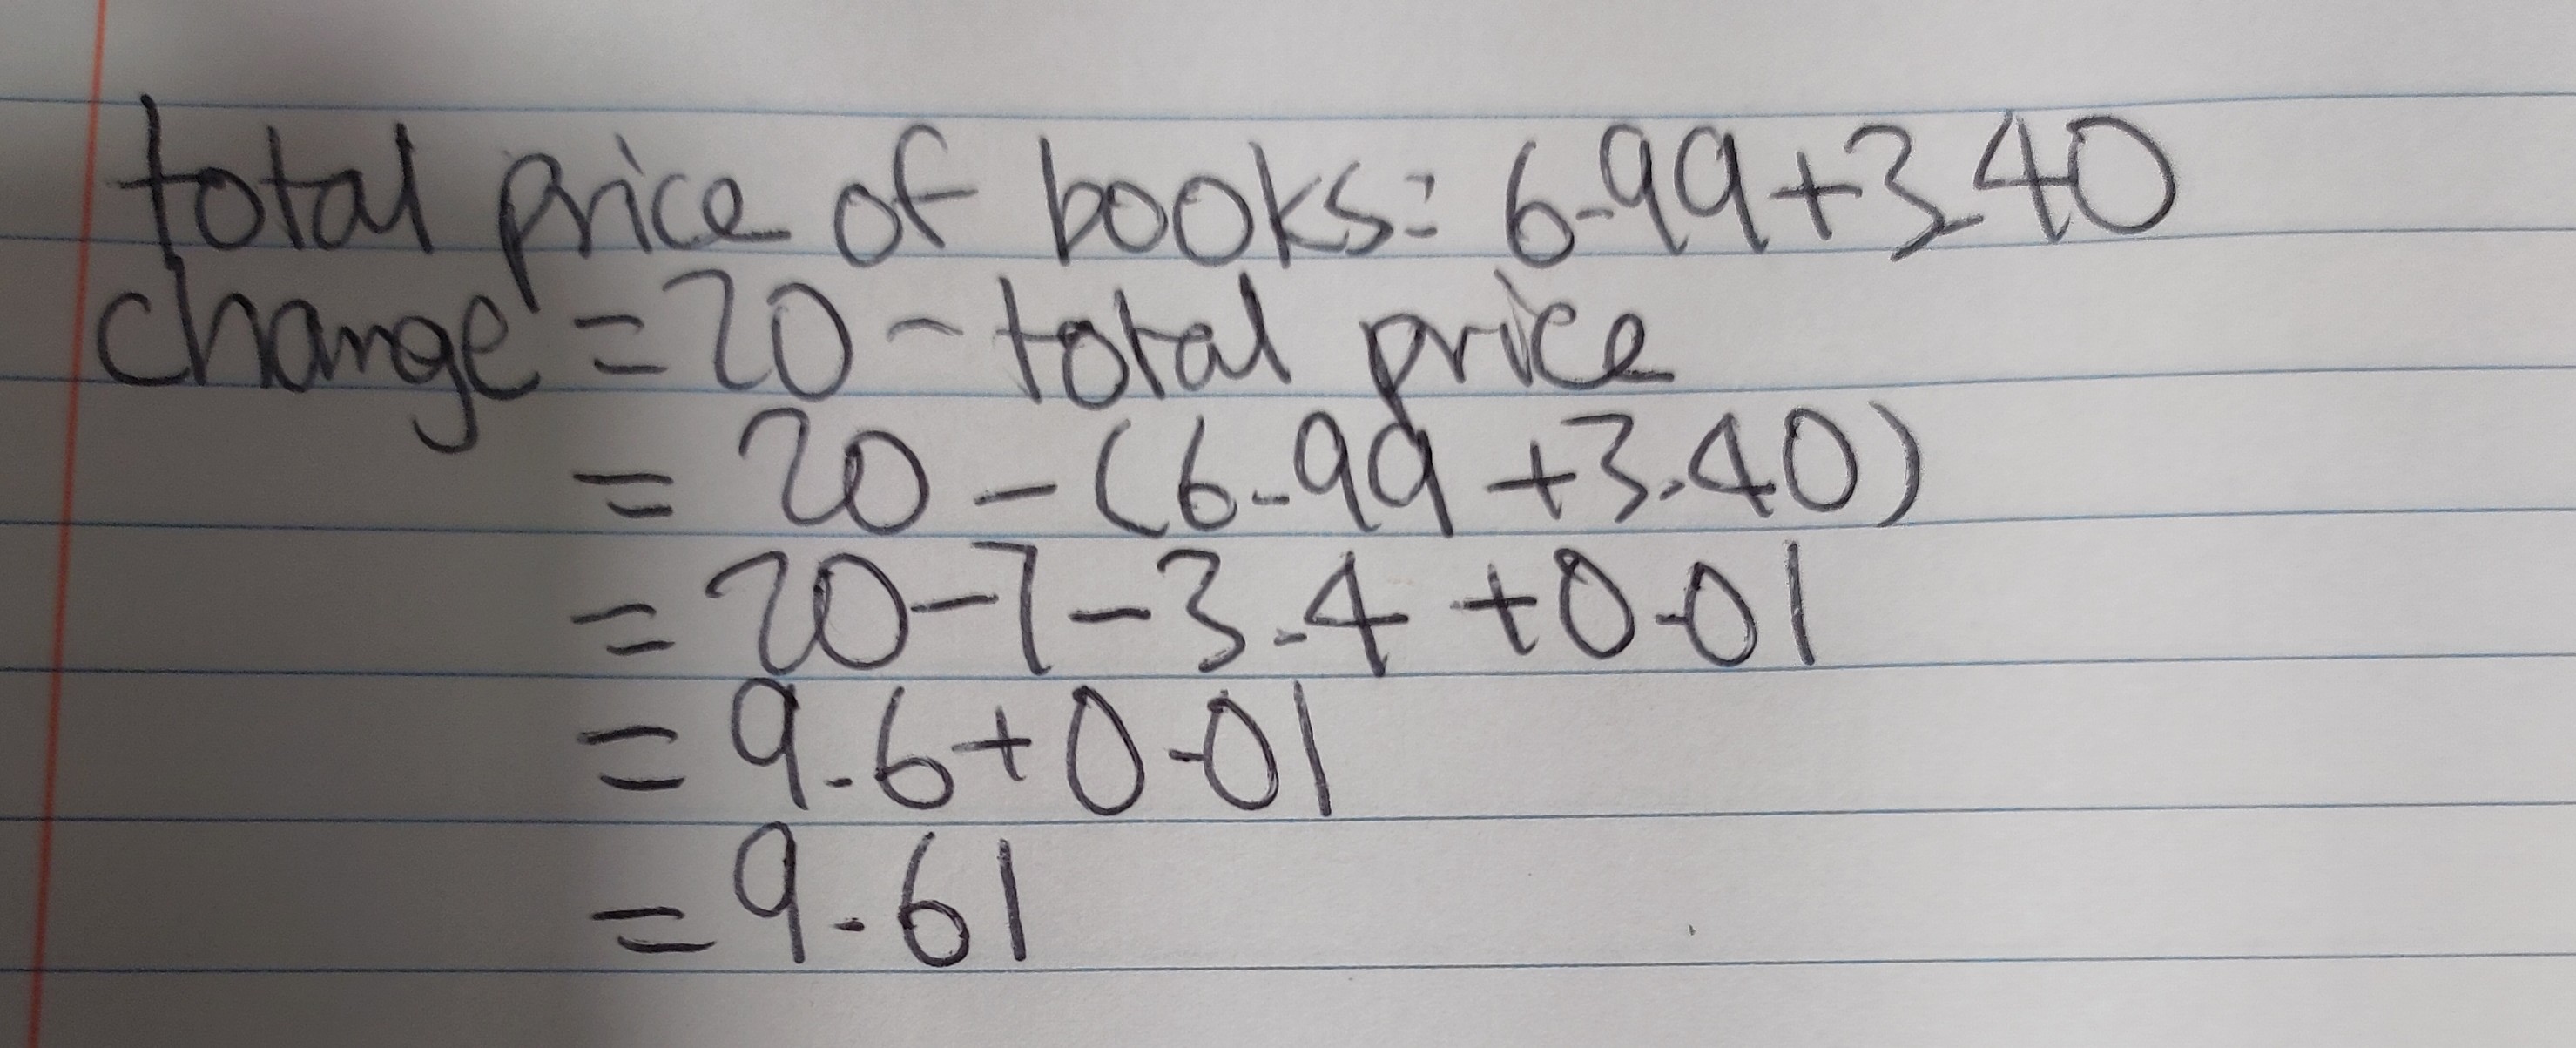 total price of books: 6.99+3.40
change = 20 - total price
= 20 - (6.99 +3.40)
= 20-7-3.4 +0.01
= 9.6+0.01
= 9.61